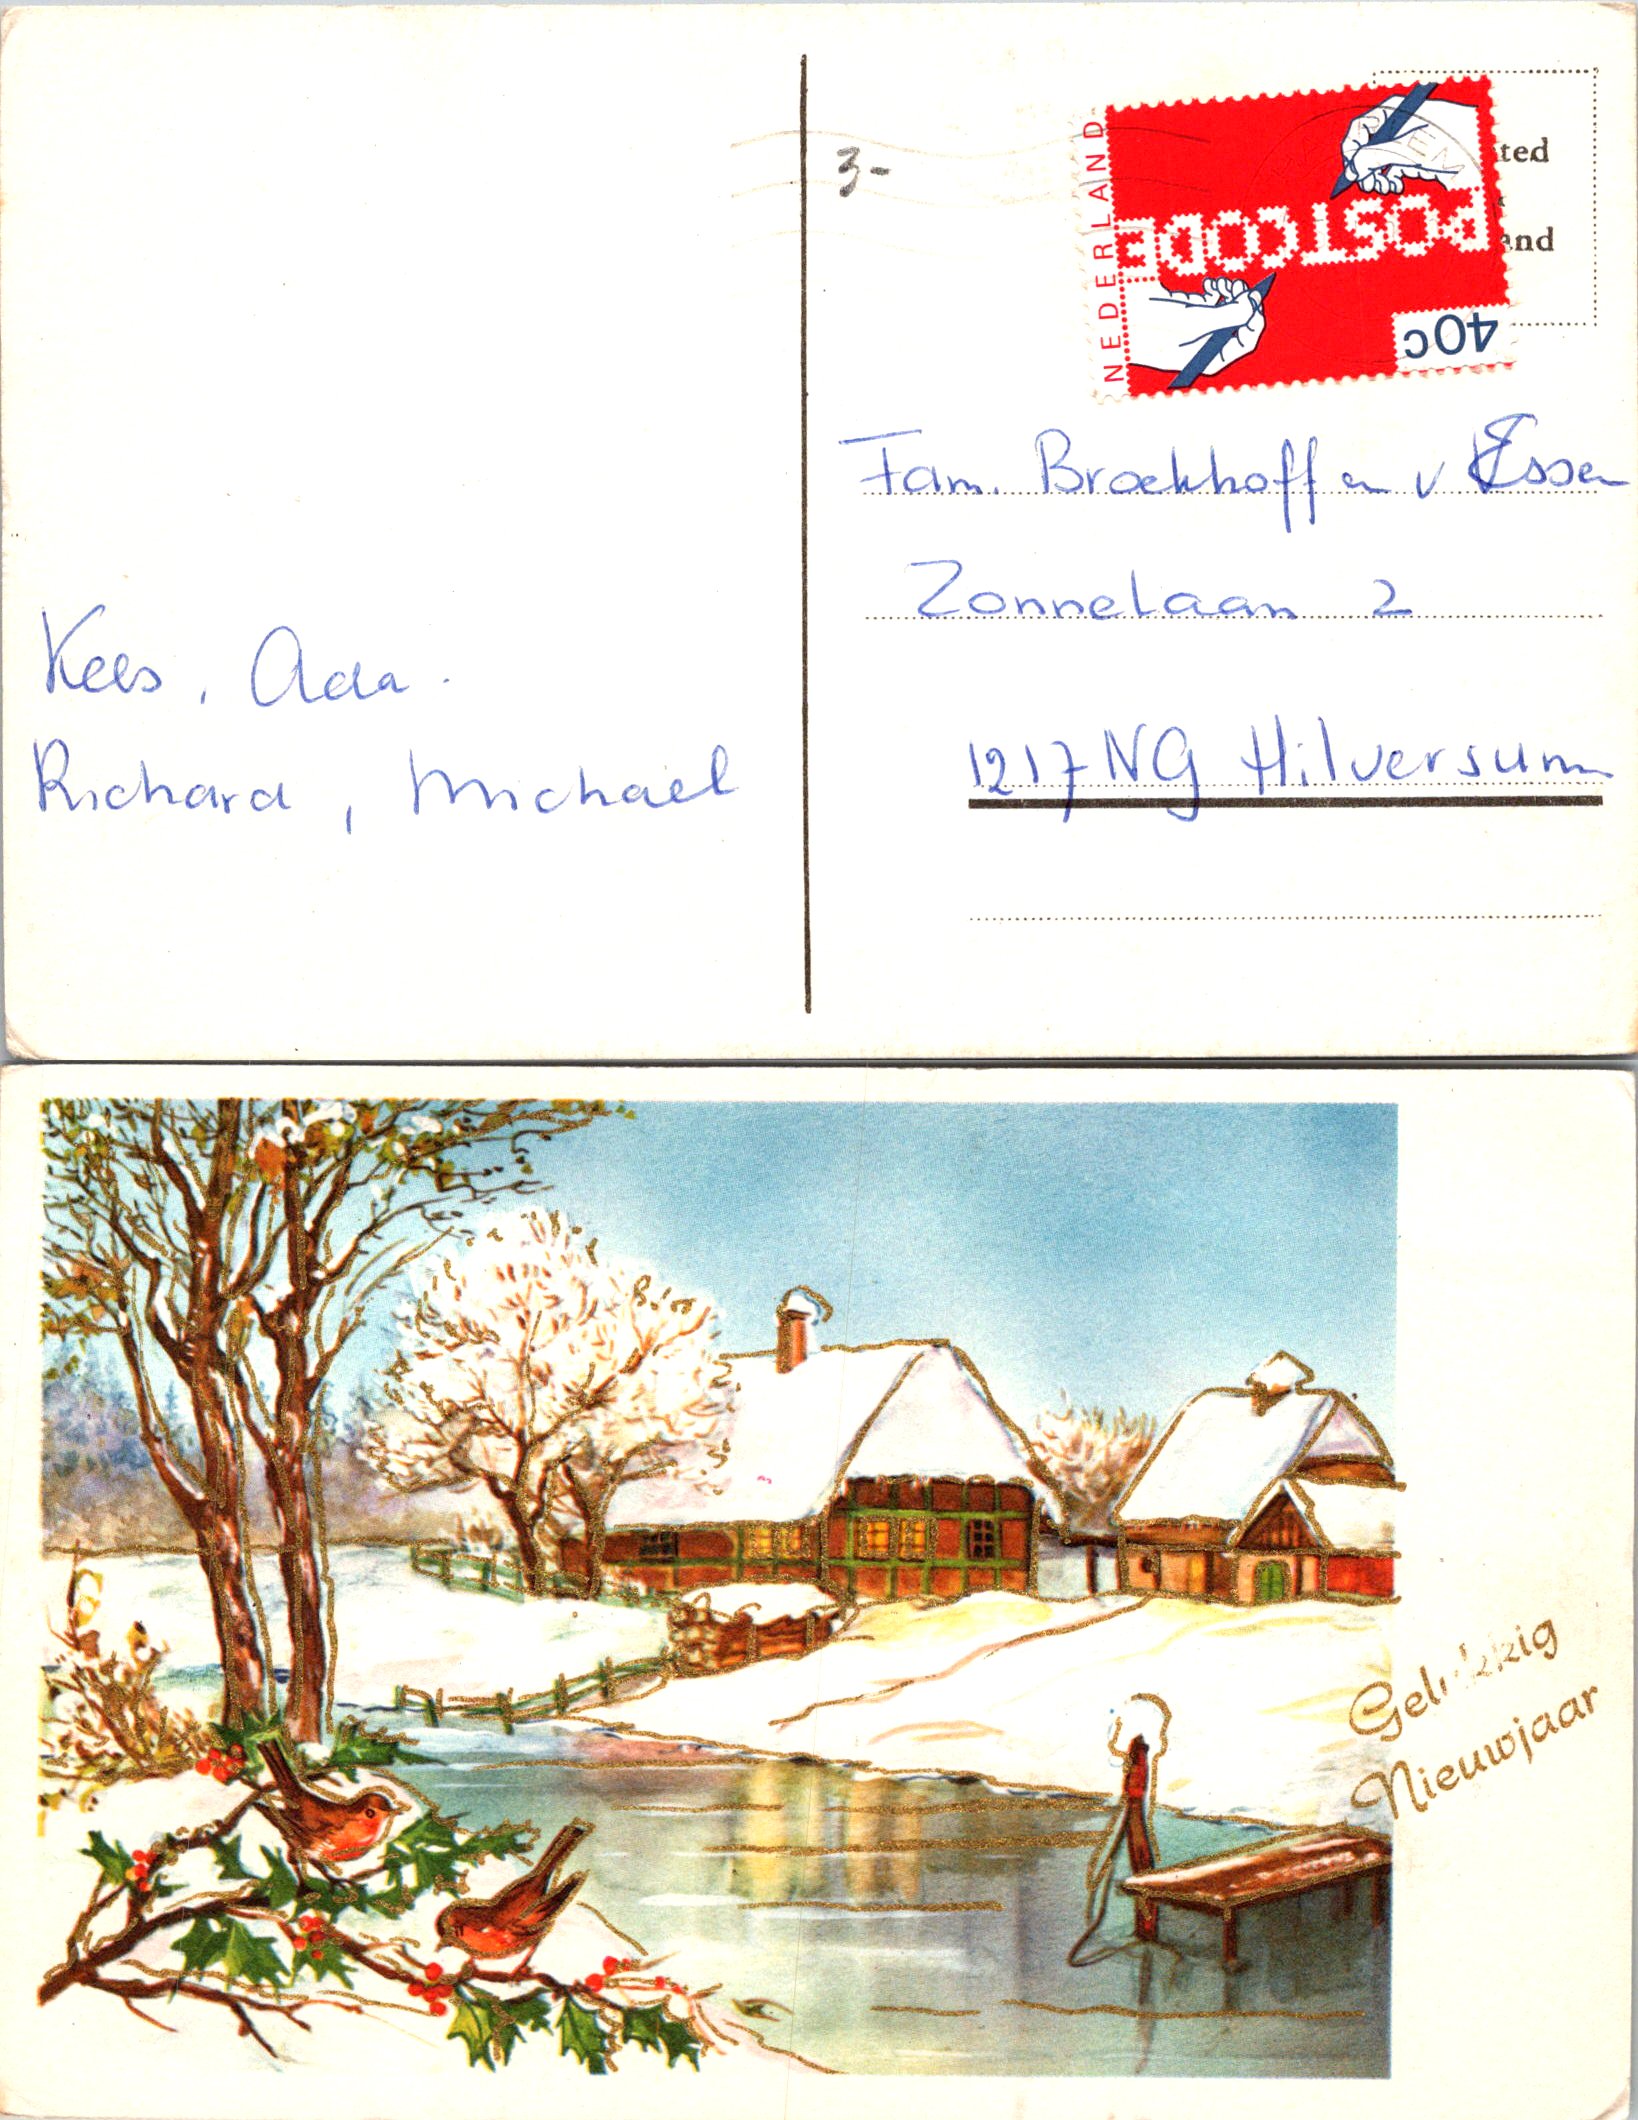 3-
NEDERLAND
POSTCODE
40c
ted
and
Fam. Broekhoff en v Essen
Zonnelaan 2
1217 NG Hilversum
Kees, Ada.
Richard, Michaël
Gelukkig
Nieuwjaar